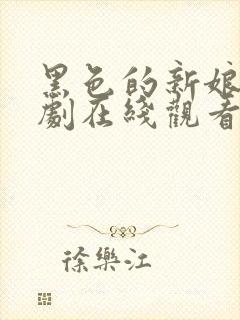 黑色的新娘
劇在綫觀看
徐樂江